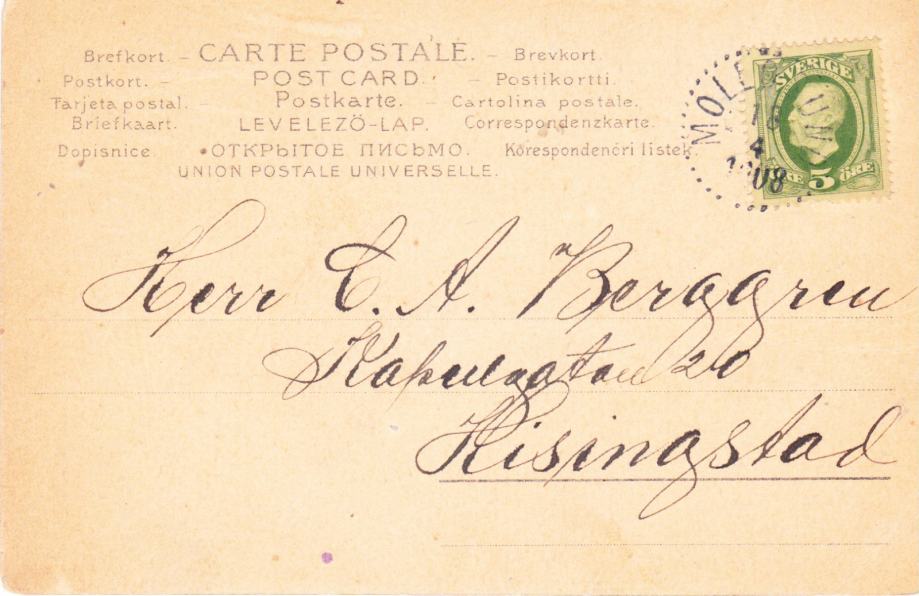 Brefkort. – CARTE POSTALE. – Brevkort.
Postkort. – POST CARD. – Postikortti.
Tarjeta postal. – Postkarte. – Cartolina postale.
Briefkaart. LEVELEZŐ-LAP. Correspondenzkarte.
Dopisnice · ОТКРЫТОЕ ПИСЬМО. Korespondenčri listek.
UNION POSTALE UNIVERSELLE.
SVERIGE
5 ÖRE
4
Herr C. A. Berggren
20